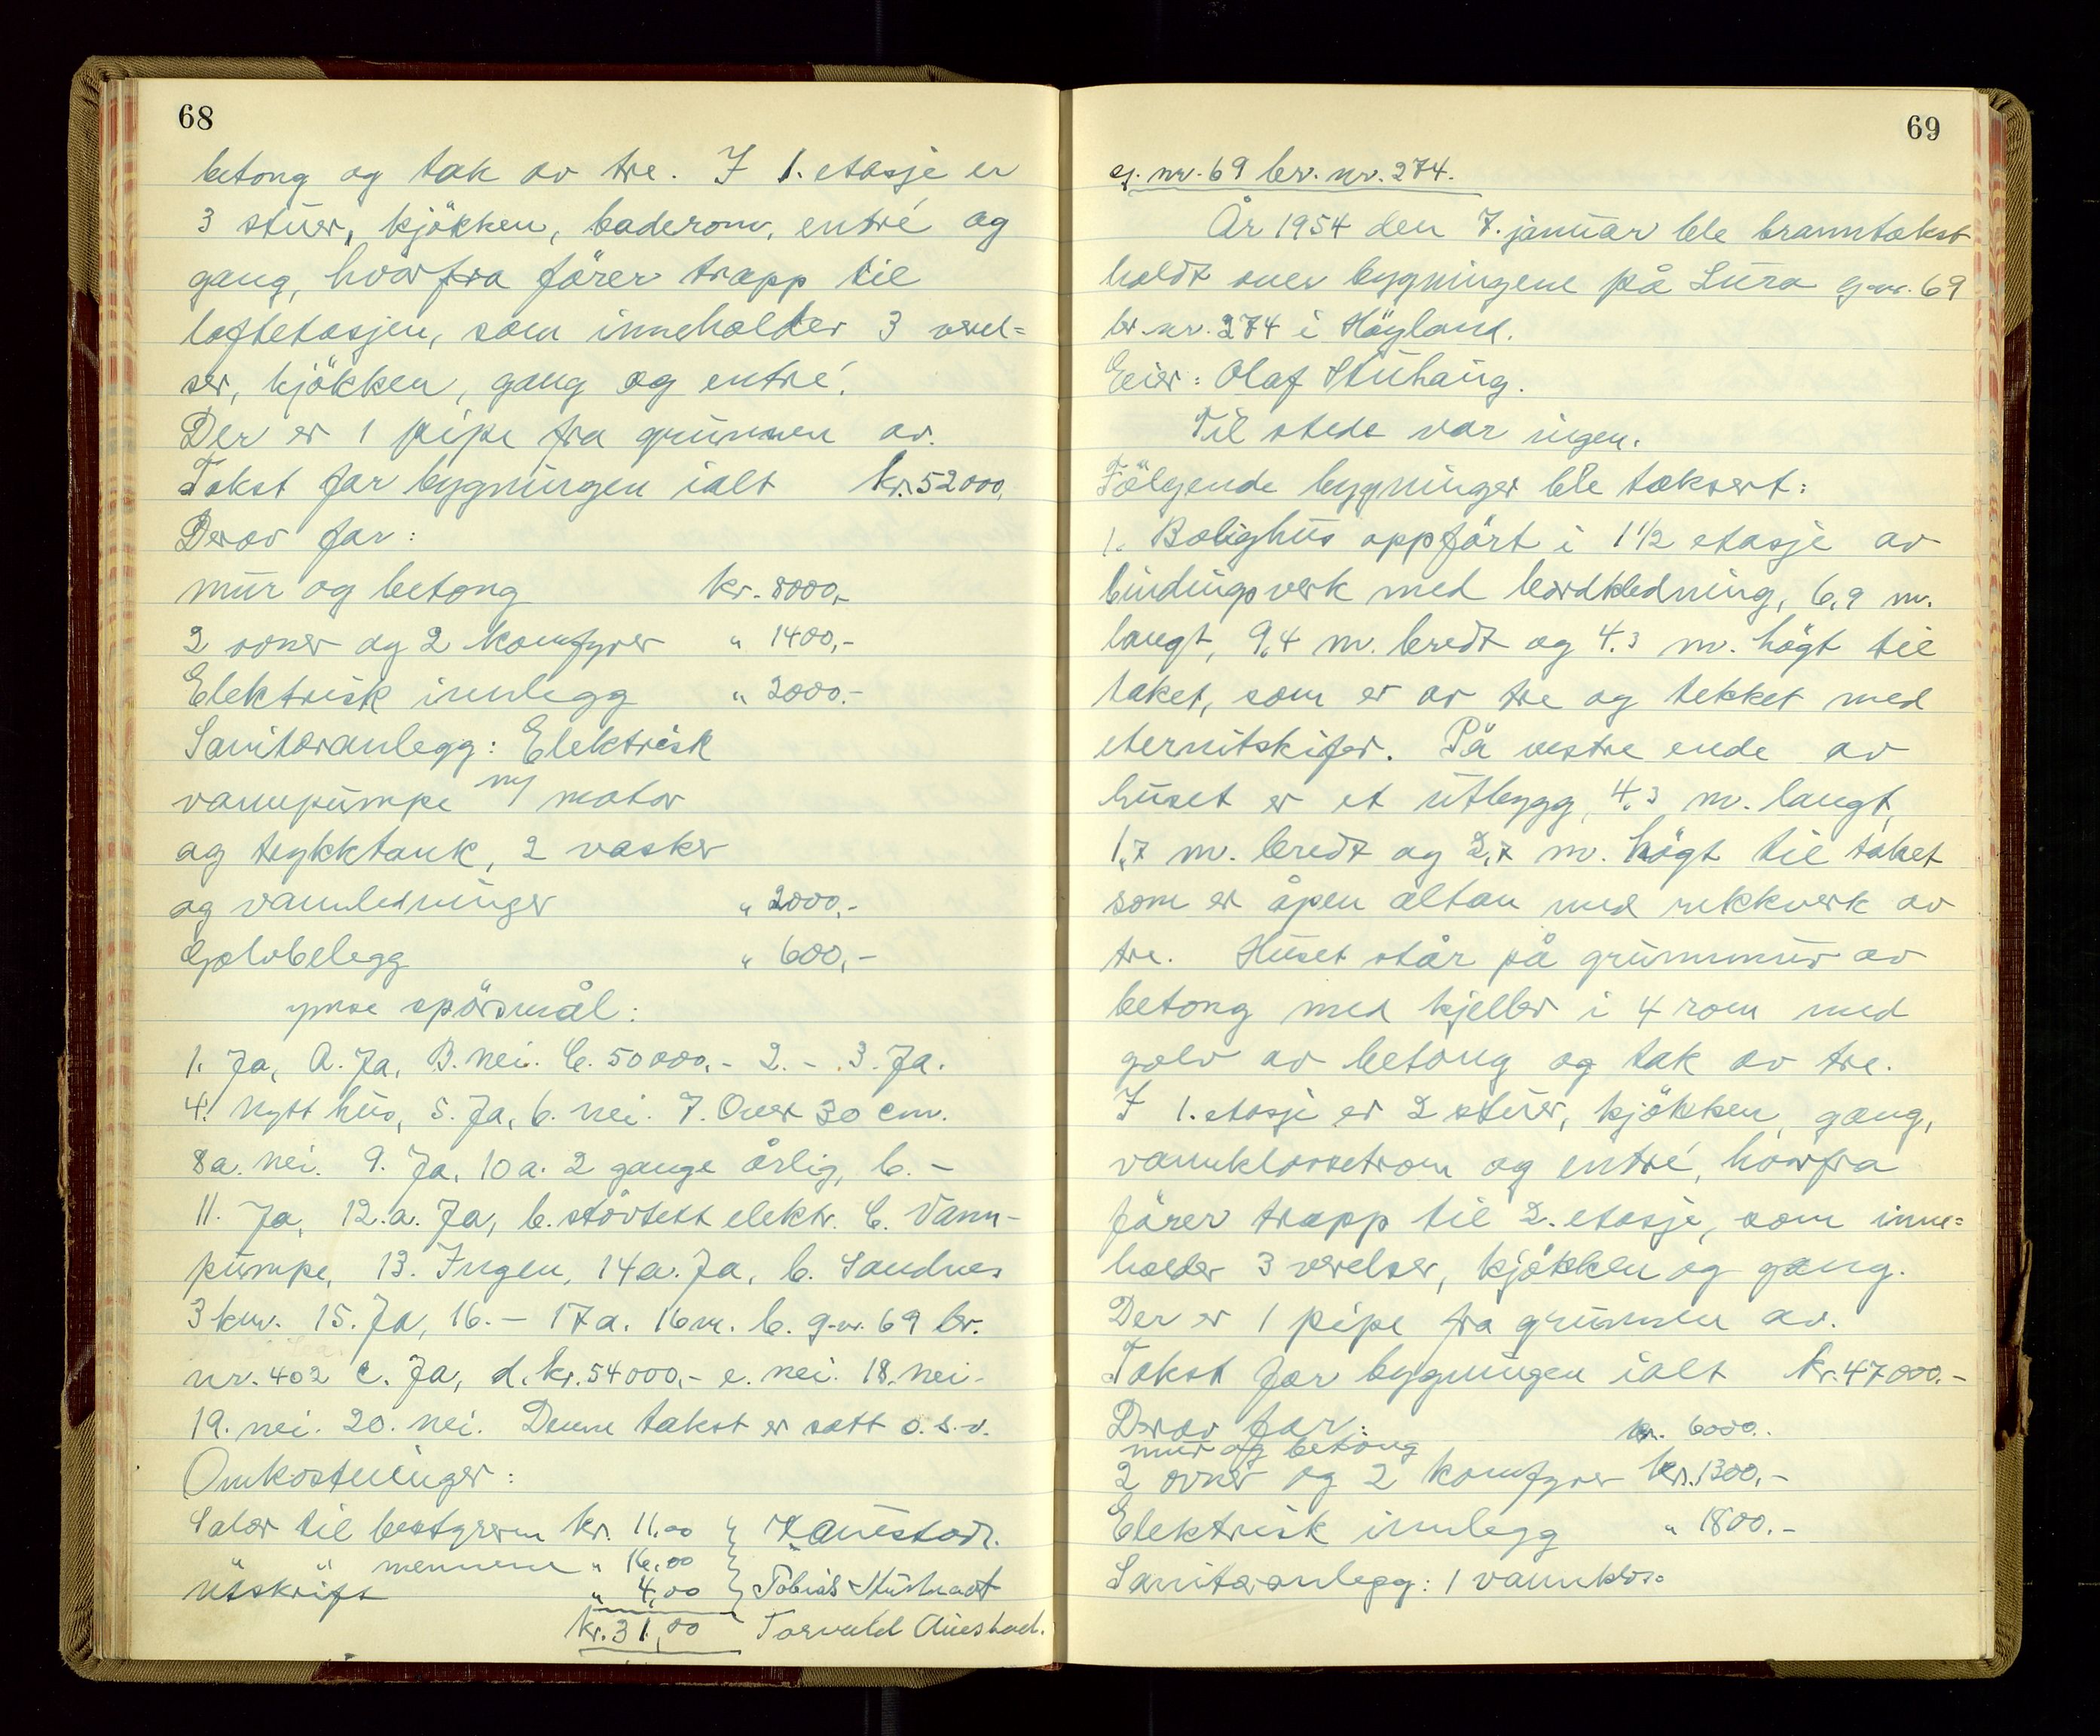 68
betong og tak av tre. I 1. etasje er
3 stuer, kjökken, baderom, entré og
gang, hvorfra förer trapp til
loftetasjen, som inneholder 3 verel=
ser, kjökken, gang og entré.
Der er 1 pipe fra grunnen av.
Takst for bygningen ialt kr. 52000,
Derav for:
mur og betong kr. 8000,-
2 ovner og 2 komfyrer " 1400,-
Elektrisk innlegg " 2000.-
Sanitæranlegg: Elektrisk
vannpumpe m/ motor
og trykktank, 2 vasker
og vannledninger " 2000,-
Golvbelegg " 600,-
ymse spörsmål:
1. Ja, A. Ja, B. nei. C. 50000.- 2. - 3. Ja.
4. nytt hus, 5. Ja, 6. nei. 7. Over 30 cm.
8a. nei. 9. Ja, 10a. 2 gange årlig, b. -
11. Ja, 12.a. Ja, b. stövtett elektr. C. Vann-
pumpe, 13. Ingen, 14a. Ja, b. Sandnes
3 km. 15. Ja, 16. - 17a. 16 m. b. g.nr. 69 br.
nr. 402 c. Ja, d. kr. 54000,- e. nei. 18. nei.
19. nei. 20. nei. Denne takst er satt o.s.v.
Omkostninger:
Salær til bestyreren kr. 11,00
" " mennene " 16,00
Utskrift " 4,00 Tobias
kr. 31,00 Torvald Auestad.
69
g. nr. 69 br. nr. 274.
År 1954 den 7. januar ble branntakst
holdt over bygningene på Lura g.nr. 69
br.nr. 274 i Höyland.
Eier: Olaf Stuhaug.
Til stede var ingen.
Fölgende bygninger ble taksert:
1. Bolighus oppfört i 1 1/2 etasje av
bindingsverk med bordkledning, 6,9 m.
langt, 9,4 m. bredt og 4.3 m. högt til
taket, som er av tre og tekket med
eternitskifer. På vestre ende av
huset er et utbygg, 4.3 m. langt,
1,7 m. bredt og 2,7 m. högt til taket
som er åpen altan med rekkverk av
tre. Huset står på grunnmur av
betong med kjeller i 4 rom med
golv av betong og tak av tre.
I 1. etasje er 2 stuer, kjökken, gang,
vannklossetrom og entré, hvorfra
förer trapp til 2. etasje, som inne=
holder 3 verelser, kjökken og gang.
Der er 1 pipe fra grunnen av.
Takst for bygningen ialt kr. 47000.-
Derav for:
mur og betong kr. 6000..
2 ovner og 2 komfyrer kr. 1300,-
Elektrisk innlegg " 1800.-
Sanitæranlegg: 1 vannklos=